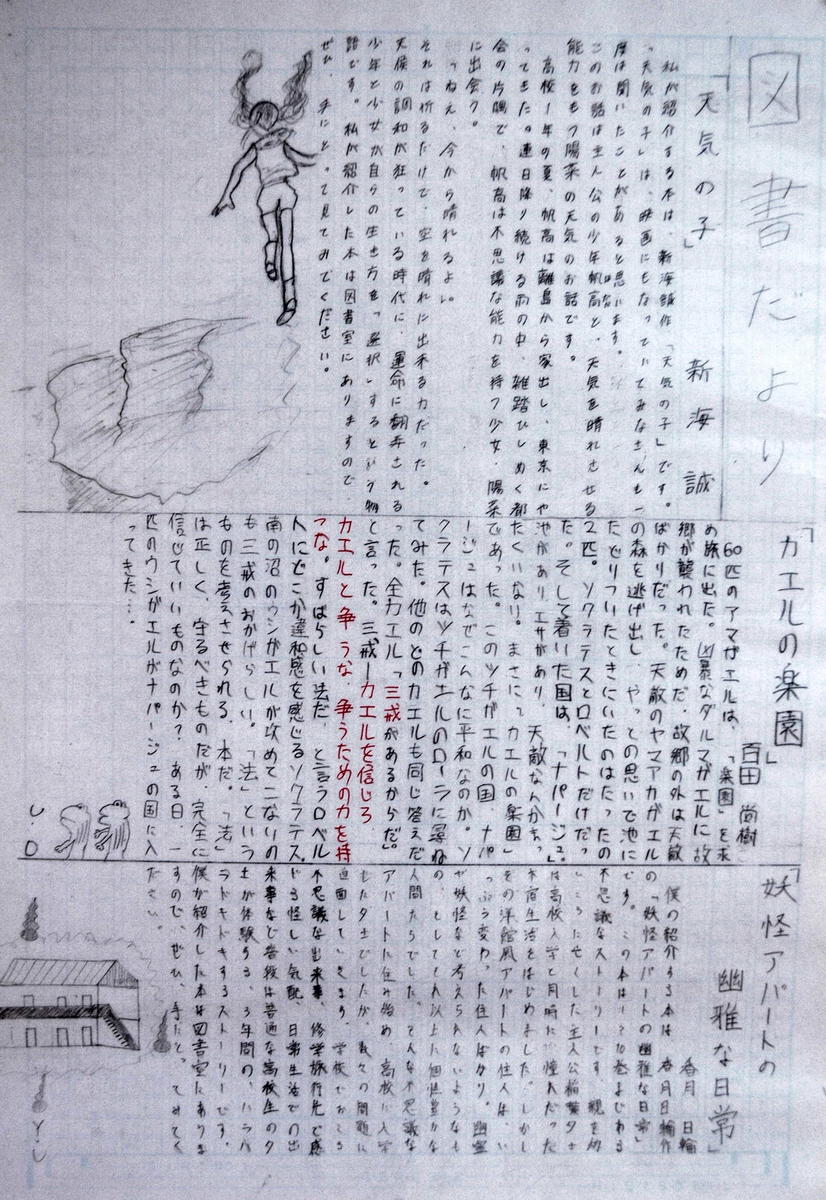 図書だより
「天気の子」
新海誠
私が紹介する本は、新海誠作「天気の子」です。
「天気の子」は、映画にもなっていてみなさんも一
度は聞いたことがあると思います。
このお話は主人公の少年帆高と、天気を晴れさせる
能力をもつ陽菜の天気のお話です。
高校1年の夏、帆高は離島から家出し、東京にや
ってきた。連日降り続ける雨の中、雑踏ひしめく都
会の片隅で、帆高は不思議な能力を持つ少女、陽菜
に出会う。
「ねえ、今から晴れるよ」
それは祈るだけで、空を晴れに出来る力だった。
天候の調和が狂っている時代に、運命に翻弄される
少年と少女が自らの生き方を「選択」するという物
語です。私が紹介した本は図書室にありますので、
ぜひ、手にとって見てみてください。
「カエルの楽園」
百田尚樹
60匹のアマガエルは、「楽園」を求
め旅に出た。凶暴なダルマガエルに故
郷が襲われたためだ。故郷の外は天敵
ばかりだった。天敵のヤマアカガエル
の森を逃げ出し、やっとの思いで池に
たどりついたときにいたのはたったの
2匹。ソクラテスとロベルトだけだっ
た。そして着いた国は、「ナパージュ」。
池がありエサがあり、天敵なんかまっ
たくいない。まさに「カエルの楽園」
であった。このツチガエルの国、ナパ
ージュはなぜこんなに平和なのか。ソ
クラテスはツチガエルのローラに尋ね
てみた。他のどのカエルも同じ答えだ
った。全カエル「三戒があるからだ。」
と言った。三戒ーカエルを信じろ、
カエルと争うな、争うための力を持
つな。すばらしい法だ、と言うロベル
人にどこか違和感を感じるソクラテス。
南の沼のウシガエルが攻めてこないの
も三戒のおかげらしい。「法」という
ものを考えさせられる、本だ。「法」
は正しく、守るべきものだが、完全に
信じていいものなのか？ある日、一
匹のウシガエルがナパージュの国に入
ってきた…。
U.O
「妖怪アパートの
幽雅な日常」
香月日輪
僕の紹介する本は、香月日輪作
の「妖怪アパートの幽雅な日常」
です。この本は1〜10巻まである
不思議なストーリーです。親を幼
いころに亡くした主人公稲葉夕士
は高校入学と同時に憧れだった
寄宿生活をはじめました。しかし
その洋館風アパートの住人は、い
っぷう変わった住人ばかり。幽霊
や妖怪など考えられないようなも
の、としてそれ以上に個性豊かな
人間たちでした。そんな不思議な
アパートに住み始め、高校に入学
した夕士でしたが、数々の問題に
直面していきます。学校でおこる
不思議な出来事、修学旅行先で感
じる怪しい気配、日常生活での出
来事など普段は普通な高校生の夕
士が体験する、3年間の、ハラハ
ラドキドキするストーリーです。
僕が紹介した本は図書室にありま
すので、ぜひ、手にとってみてく
ださい。
Y.U